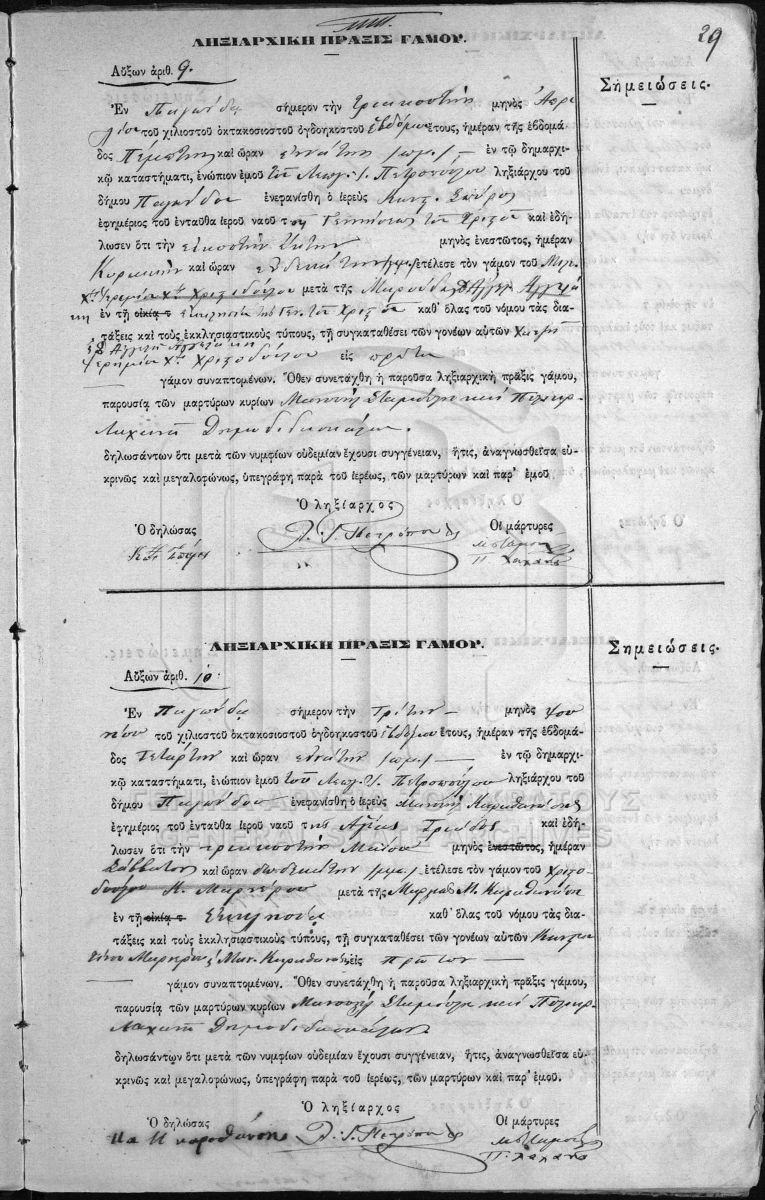 29
ΛΗΞΙΑΡΧΙΚΗ ΠΡΑΞΙΣ ΓΑΜΟΥ.
Αὔξων ἀριθ. 9.
Σημειώσεις.
Ἐν Παγώνδα σήμερον τὴν τριακοστὴν μηνὸς Ἀπρι
λίου τοῦ χιλιοστοῦ ὀκτακοσιοστοῦ ὀγδοηκοστοῦ ἑβδόμου ἔτους, ἡμέραν τῆς ἑβδομά
δος Πέμπτην καὶ ὥραν ἐννάτην ἐν τῷ δημαρχι-
κῷ καταστήματι, ἐνώπιον ἐμοῦ τοῦ Πετροπούλου ληξιάρχου τοῦ
δήμου Παγώνδου ἐνεφανίσθη ὁ ἱερεὺς Σπύρος
ἐφημέριος τοῦ ἐνταῦθα ἱεροῦ ναοῦ τῆς Γεννήσεως τοῦ Χριστοῦ καὶ ἐδή-
λωσεν ὅτι τὴν εἰκοστὴν ἕκτην μηνὸς ἐνεστῶτος, ἡμέραν
Κυριακὴν καὶ ὥραν ἑνδεκάτην ἐτέλεσε τὸν γάμον τοῦ
Χριστοδούλου μετὰ τῆς
ἐν τῇ οἰκίᾳ τ Ἐκκλησία τῆς Γεν. τοῦ Χριστοῦ καθ᾽ ὅλας τοῦ νόμου τὰς δια-
τάξεις καὶ τοὺς ἐκκλησιαστικοὺς τύπους, τῇ συγκαταθέσει τῶν γονέων αὐτῶν
Χριστοδούλου εἰς πρῶτον
γάμον συναπτομένων. Ὅθεν συνετάχθη ἡ παροῦσα ληξιαρχικὴ πρᾶξις γάμου,
παρουσίᾳ τῶν μαρτύρων κυρίων Μανουὴλ Σταμούλη καὶ
Δημοδιδασκάλου.
δηλωσάντων ὅτι μετὰ τῶν νυμφίων οὐδεμίαν ἔχουσι συγγένειαν, ἥτις, ἀναγνωσθεῖσα εὐ-
κρινῶς καὶ μεγαλοφώνως, ὑπεγράφη παρὰ τοῦ ἱερέως, τῶν μαρτύρων καὶ παρ᾽ ἐμοῦ.
Ὁ ληξίαρχος
Ὁ δηλώσας Οἱ μάρτυρες
ΛΗΞΙΑΡΧΙΚΗ ΠΡΑΞΙΣ ΓΑΜΟΥ.
Αὔξων ἀριθ. 10.
Σημειώσεις.
Ἐν Παγώνδα σήμερον τὴν Τρίτην μηνὸς Ἰου
νίου τοῦ χιλιοστοῦ ὀκτακοσιοστοῦ ὀγδοηκοστοῦ ἑβδόμου ἔτους, ἡμέραν τῆς ἑβδομά-
δος Τετάρτην καὶ ὥραν ἐννάτην ἐν τῷ δημαρχι-
κῷ καταστήματι, ἐνώπιον ἐμοῦ τοῦ Πετροπούλου ληξιάρχου τοῦ
δήμου Παγώνδου ἐνεφανίσθη ὁ ἱερεὺς Μανουὴλ Καραθανάσης
ἐφημέριος τοῦ ἐνταῦθα ἱεροῦ ναοῦ τῆς Ἁγίας Τριάδος καὶ ἐδή-
λωσεν ὅτι τὴν τριακοστὴν Μαΐου μηνὸς ἐνεστῶτος, ἡμέραν
Σάββατον καὶ ὥραν δωδεκάτην ἐτέλεσε τὸν γάμον τοῦ Χριστο
δούλου Κ. Μαρνέρου μετὰ τῆς Μ. Καραθανάση
ἐν τῇ οἰκίᾳ τ Ἐκκλησία καθ᾽ ὅλας τοῦ νόμου τὰς δια-
τάξεις καὶ τοὺς ἐκκλησιαστικοὺς τύπους, τῇ συγκαταθέσει τῶν γονέων αὐτῶν Κωνσταν
τίνου Μαρνέρου Μαν. Καραθανάση εἰς πρῶτον
γάμον συναπτομένων. Ὅθεν συνετάχθη ἡ παροῦσα ληξιαρχικὴ πρᾶξις γάμου,
παρουσίᾳ τῶν μαρτύρων κυρίων Μανουὴλ Σταμούλη καὶ
Δημοδιδασκάλου
δηλωσάντων ὅτι μετὰ τῶν νυμφίων οὐδεμίαν ἔχουσι συγγένειαν, ἥτις, ἀναγνωσθεῖσα εὐ-
κρινῶς καὶ μεγαλοφώνως, ὑπεγράφη παρὰ τοῦ ἱερέως, τῶν μαρτύρων καὶ παρ᾽ ἐμοῦ.
Ὁ ληξίαρχος
Ὁ δηλώσας Οἱ μάρτυρες
ΓΕΝΙΚΑ ΑΡΧΕΙΑ ΤΟΥ ΚΡΑΤΟΥΣ
GENERAL STATE ARCHIVES